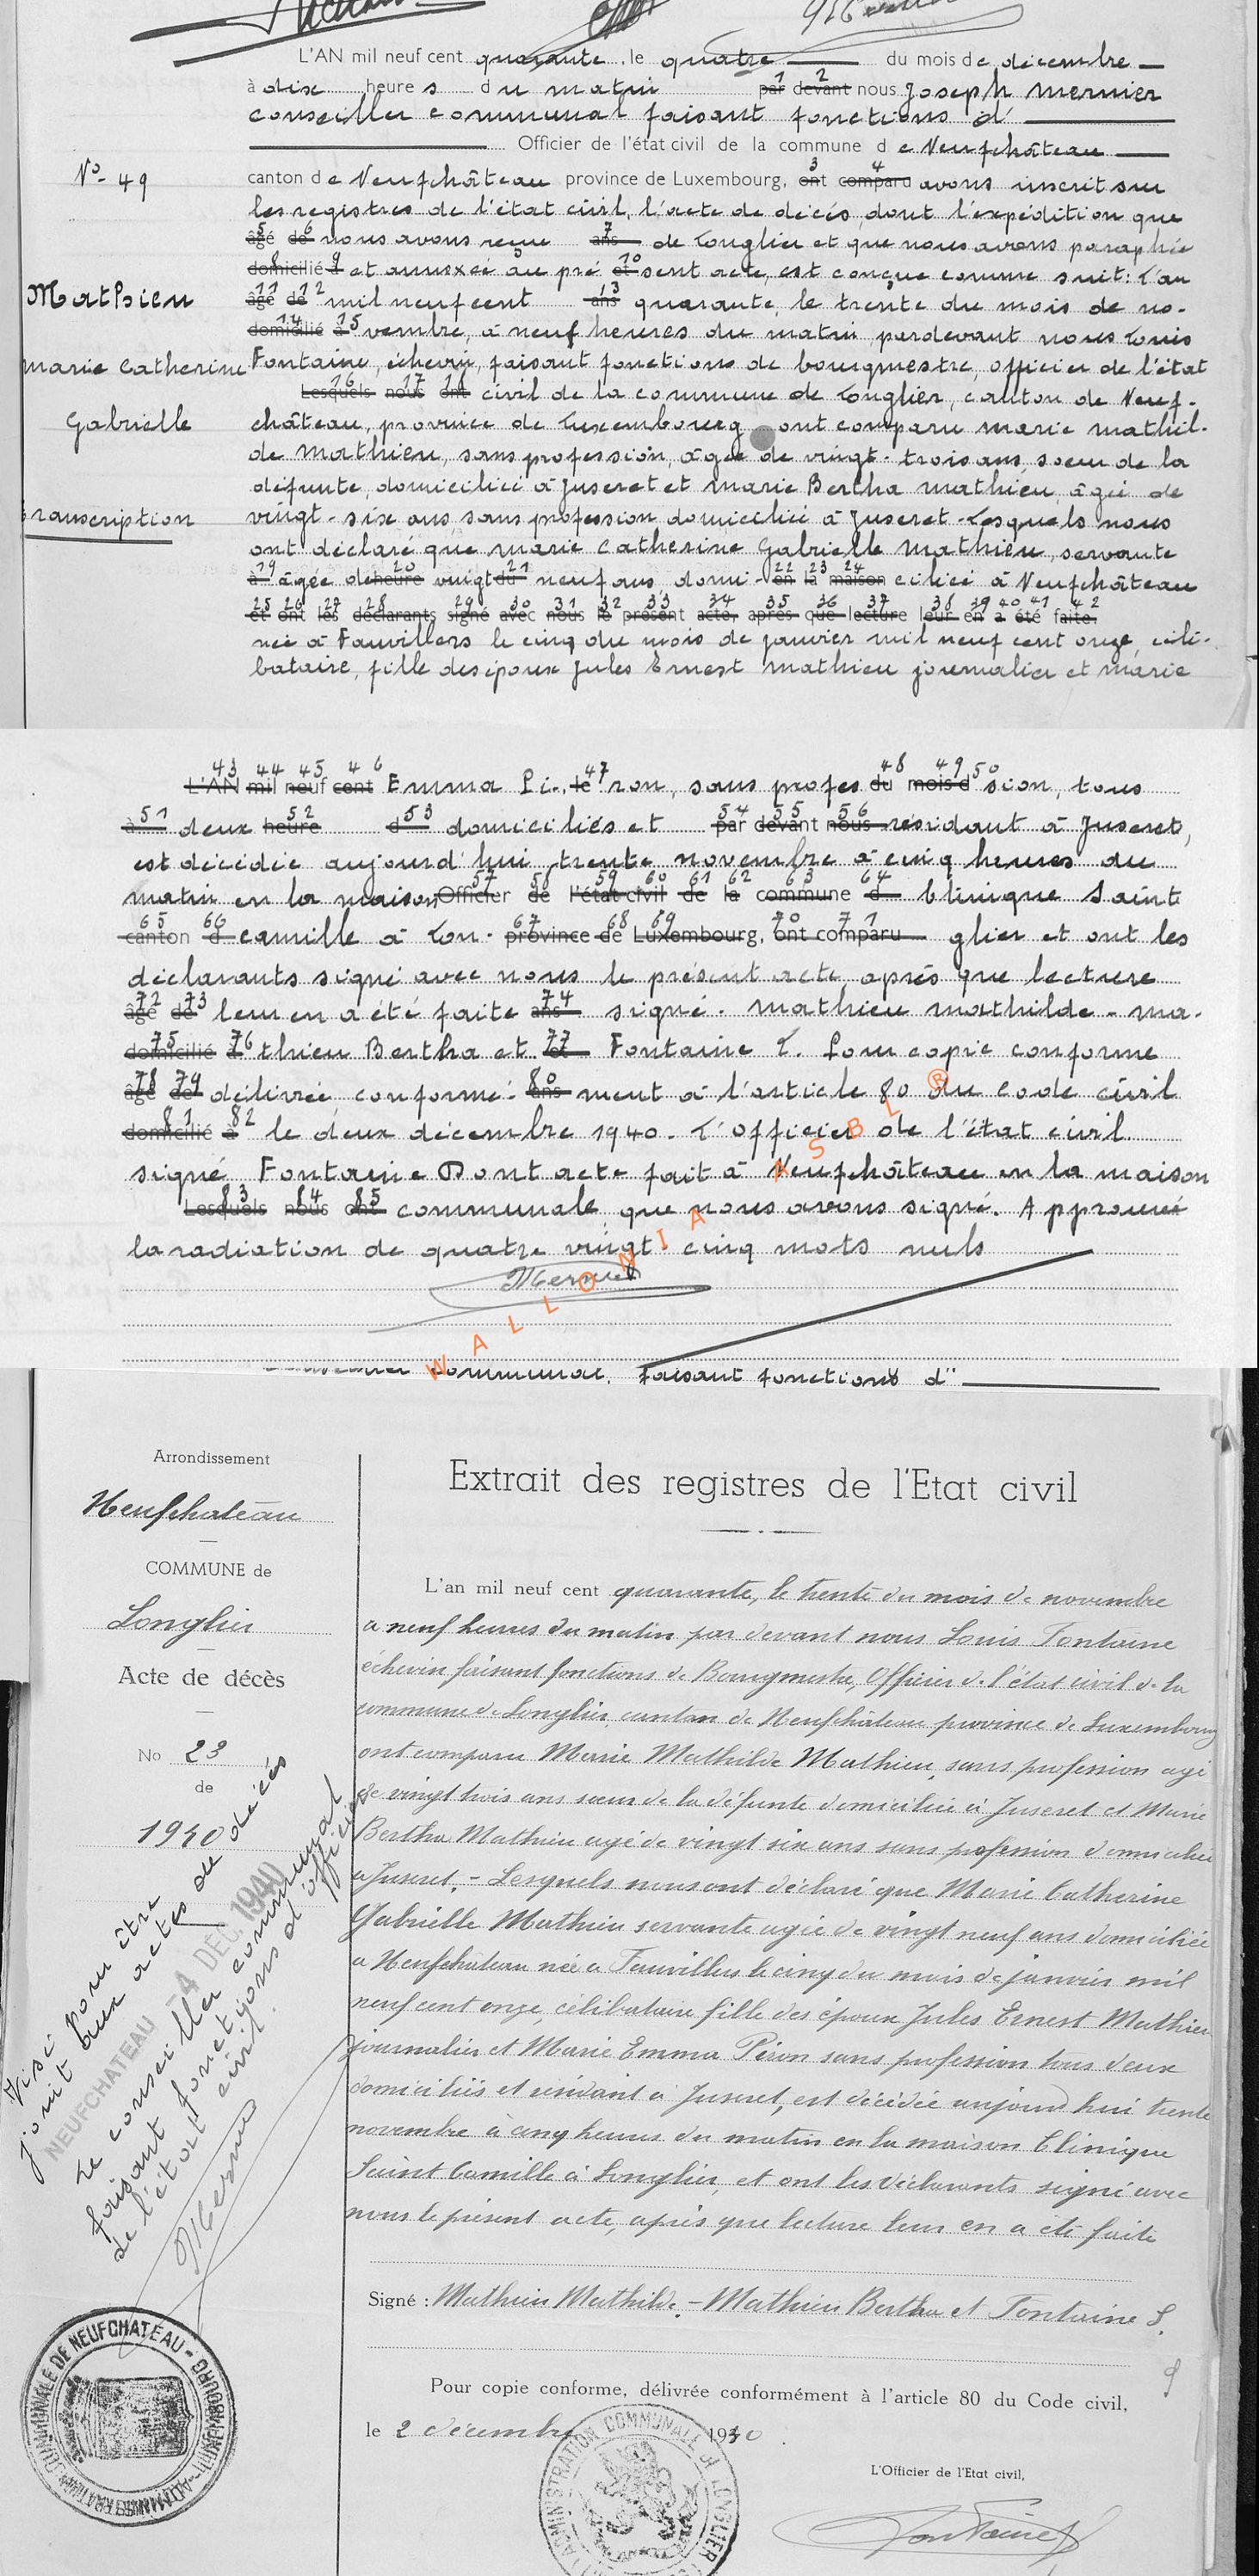 L'AN mil neuf cent quarante, le quatre du mois de décembre
à dix heures du matin par 1 devant 2 nous Joseph Mernier
conseiller communal faisant fonctions d'
Officier de l'état civil de la commune de Neufchâteau
N° 49
canton de Neufchâteau province de Luxembourg, ont 3 comparu 4 avons inscrit sur
les registres de l'état civil, l'acte de décès, dont l'expédition que
âgé 5 de 6 nous avons reçue ans 7 de Longlier et que nous avons paraphée
domicilié 8 à 9 et annexée au pré et 10 sent acte, est conçue comme suit: L'an
Mathieu
âgé 11 de 12 mil neuf cent ans 13 quarante, le trente du mois de no-
domicilié 14 à 15 vembre, à neuf heures du matin pardevant nous Louis
Marie Catherine
Fontaine, échevin, faisant fonctions de bourgmestre, officier de l'état
Lesquels 16 nous 17 ont 18 civil de la commune de Longlier, canton de Neuf-
Gabrielle
château, province de Luxembourg ont comparu Marie Mathil-
de Mathieu, sans profession, âgée de vingt-trois ans, soeur de la
défunte, domiciliée à Juseret et Marie Bertha Mathieu, âgée de
transcription
vingt-six ans sans profession domiciliée à Juseret - Lesquels nous
ont déclaré que Marie Catherine Gabrielle Mathieu, servante
à 19 âgée de heure 20 vingt du 21 neuf ans, domi- en 22 la 23 maison 24 ciliée à Neufchâteau
et 25 ont 26 les 27 déclarants 28 signé 29 avec 30 nous 31 le 32 présent 33 acte, 34 après 35 que 36 lecture 37 leur 38 en 39 a 40 été 41 faite. 42
née à Fauvillers le cinq du mois de janvier mil neuf cent onze, céli-
bataire, fille des époux Jules Ernest Mathieu journalier et Marie
L'AN 43 mil 44 neuf 45 cent 46 Emma Pi- le 47 ron, sans profes du 48 mois 49 d 50 sion, tous
à 51 deux heure 52 d 53 domiciliés et par 54 devant 55 nous 56 résidant à Juseret,
est décédée aujourd'hui trente novembre à cinq heures du
matin en la maison Officier 57 de 58 l'état 59 civil 60 de 61 la 62 commune 63 d 64 Clinique Sainte
canton 65 d 66 Camille à Lon- province 67 de 68 Luxembourg, 69 ont 70 comparu 71 glier et ont les
déclarants signé avec nous le présent acte après que lecture
âgé 72 de 73 leur en a été faite ans 74 signé. Mathieu Mathilde - Ma-
domicilié 75 à 76 thieu Bertha et et 77 Fontaine L. Pour copie conforme
âgé 78 de 79 délivrée conformé- ans 80 ment à l'article 80 du code civil
domicilié 81 à 82 le deux décembre 1940. L'officier de l'état civil.
signé Fontaine Dont acte fait à Neufchâteau en la maison
Lesquels 83 nous 84 ont 85 communale que nous avons signé. Approuvé
la radiation de quatre vingt cinq mots nuls
Mernier
WALLONIA ASBL ®
communal, faisant fonctions d'
Arrondissement
Neufchateau
COMMUNE de
Longlier
Acte de décès
No 23
de
1940
Extrait des registres de l'Etat civil
L'an mil neuf cent quarante, le trente du mois de novembre
a neuf heures du matin par devant nous Louis Fontaine
échevin faisant fonctions de Bourgmestre, Officier de l'état civil de la
commune de Longlier, canton de Neufchâteau province de Luxembourg
ont comparu Marie Mathilde Mathieu, sans profession agée
de vingt trois ans soeur de la défunte domiciliée à Juseret et Marie
Bertha Mathieu agée de vingt six ans sans profession domiciliée
a Juseret. - Lesquels nous ont déclaré que Marie Catherine
Gabrielle Mathieu servante agée de vingt neuf ans domiciliée
a Neufchateau née a Fauvillers le cinq du mois de janvier mil
neuf cent onze, célibataire fille des époux Jules Ernest Mathieu
journalier et Marie Emma Piron sans profession tous deux
domiciliés et résidant à Juseret, est décédée aujourd'hui trente
novembre à cinq heures du matin en la maison Clinique
Saint Camille à Longlier, et ont les déclarants signé avec
nous le présent acte, après que lecture leur en a été faite
Signé : Mathieu Mathilde. - Mathieu Bertha et Fontaine L.
Pour copie conforme, délivrée conformément à l'article 80 du Code civil,
le 2 décembre 1940.
L'Officier de l'Etat civil,
Fontaine
Visé pour être
joint aux actes de décès
NEUFCHATEAU -4 DEC. 1940
Le conseiller communal
faisant fonctions d'officier
de l'état civil.
Mernier
ADMINISTRATION COMMUNALE DE NEUFCHATEAU - LUXEMBOURG
ADMINISTRATION COMMUNALE DE LONGLIER